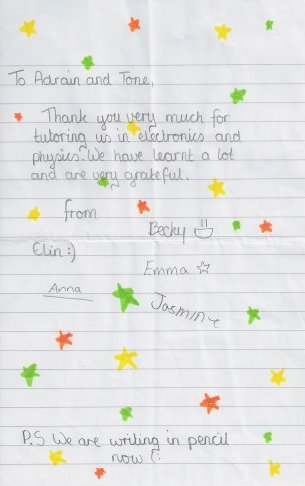 To Adrain and Tone,
Thank you very much for
tutoring us in electronics and
physics. We have learnt a lot
and are very grateful.
from
Becky
Elin :)
Emma ☆
Anna
Jasmin
P.S We are writing in pencil
now (: